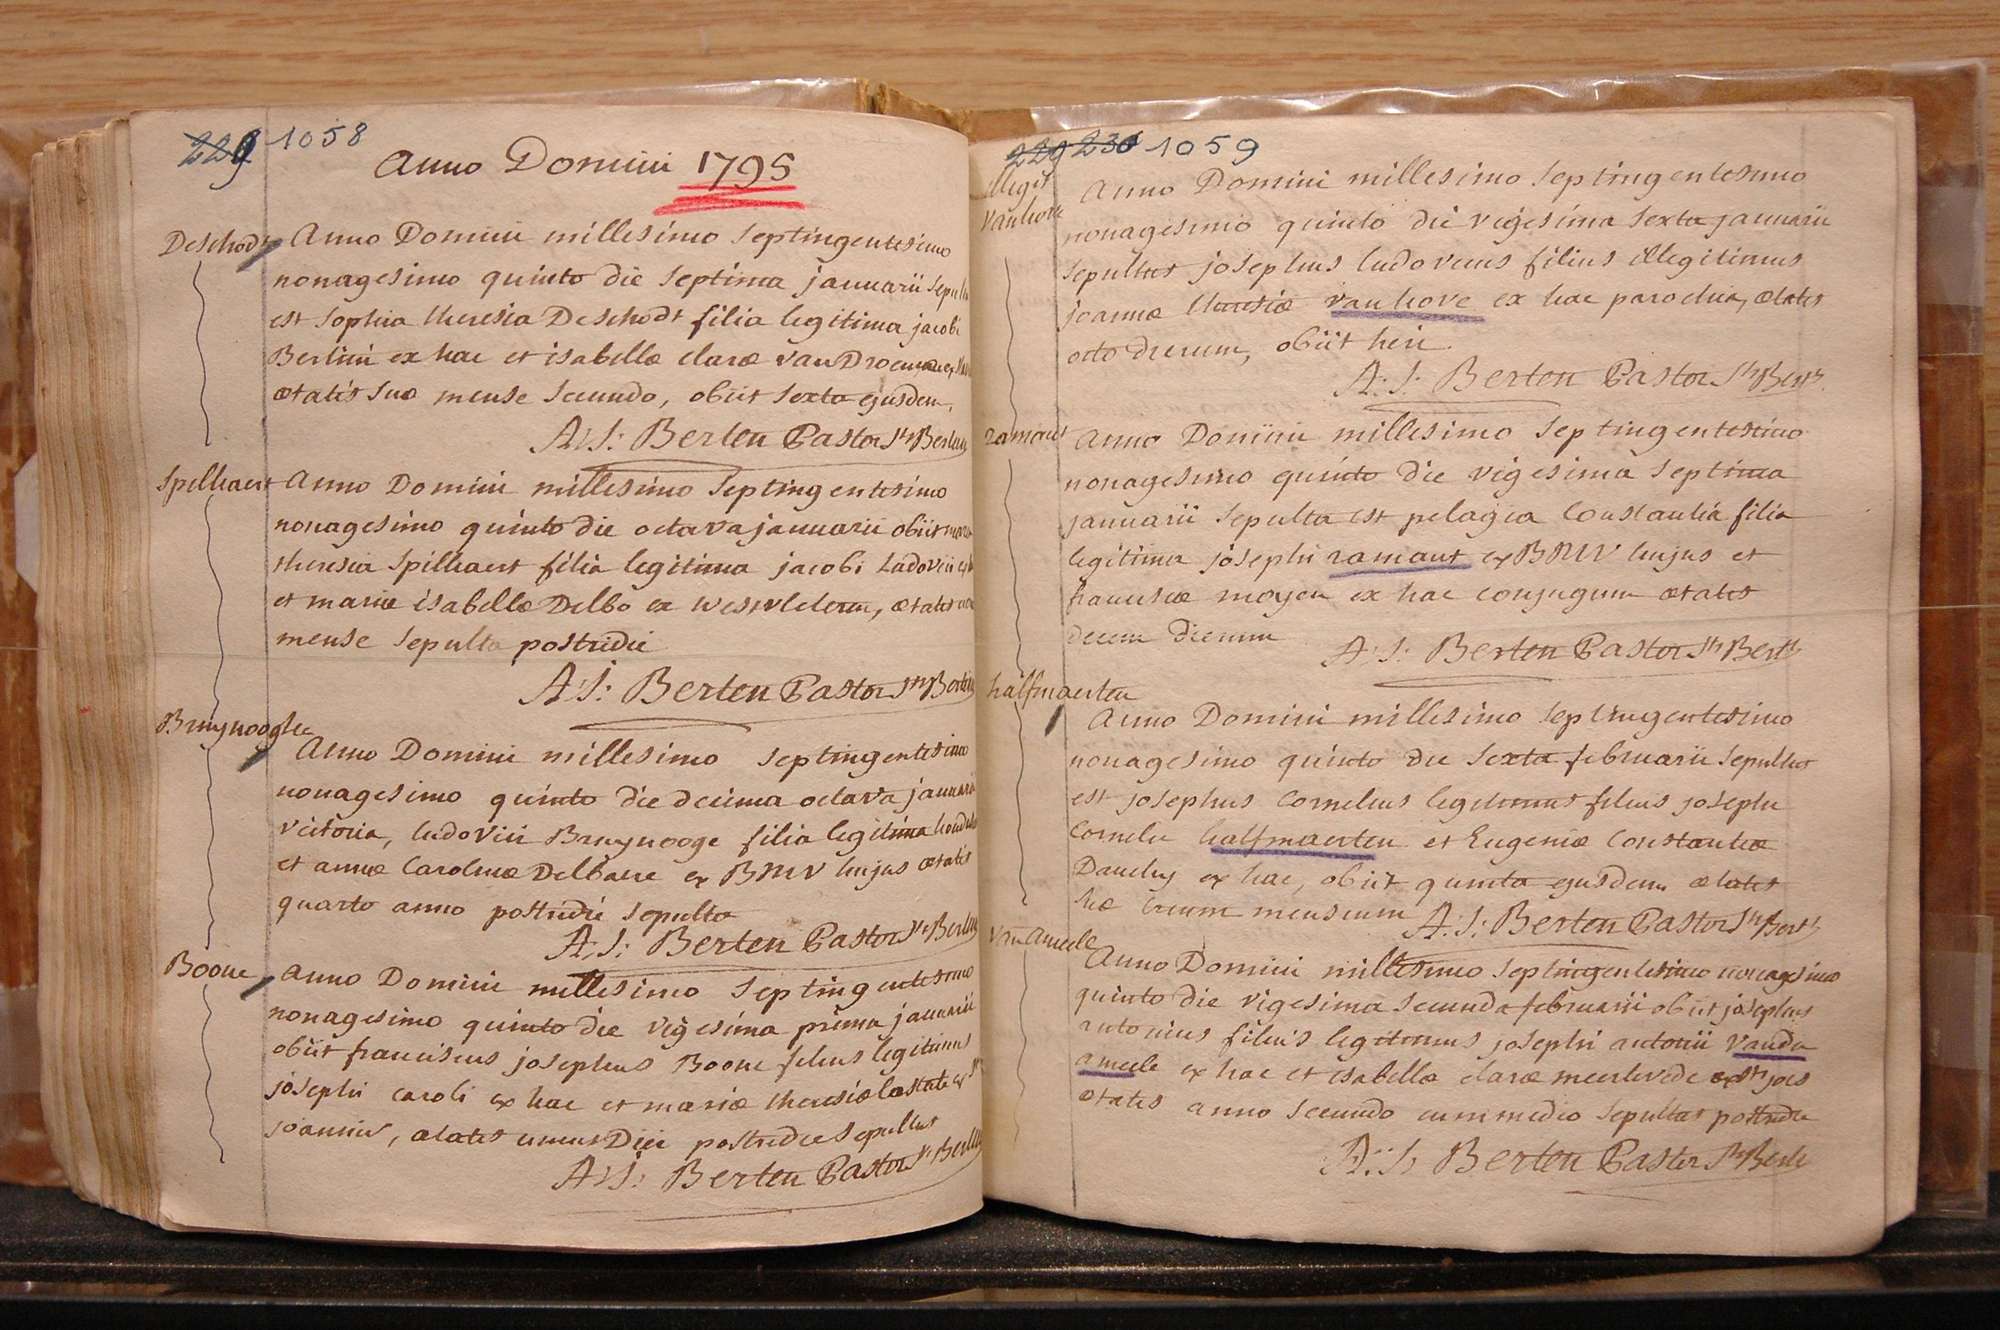 1058
Anno Domini 1795
Deschodt
Anno Domini millesimo septingentesimo
nonagesimo quinto die septima januarii
est sophia theresia Deschodt filia legitima jacobi
Bertini ex hac et isabellæ claræ van
ætatis suæ mense secundo, obiit sexta ejusdem.
A: J: Berten Pastor Sti
Spillaert
Anno Domini millesimo septingentesimo
nonagesimo quinto die octava januarii obiit
theresia Spilliaert filia legitima jacobi Ludovici
et mariæ isabellæ Delbo ex westvleteren, ætatis
mense sepulta postridie
A: J: Berten Pastor Sti
Bruynooghe
Anno Domini millesimo septingentesimo
nonagesimo quinto die decima octava januarii
victoria, ludovici Bruynooge filia legitima
et annæ Carolinæ Delbaere ex BMV hujus ætatis
quarto anno postridie sepulta
A: J: Berten Pastor Sti
Boone
Anno Domini millesimo septingentesimo
nonagesimo quinto die vigesima prima januarii
obiit franciscus josephus Boone filius legitimus
josephi caroli ex hac et mariæ theresiæ ex
joannis, ætatis unius Diei postridie sepultus
A: J: Berten Pastor Sti
229 230 1059
illegit
Vanhove
Anno Domini millesimo septingentesimo
nonagesimo quinto die vigesima sexta januarii
sepultus josephus ludovicus filius illegitimus
joannæ theresiæ vanhove ex hac parochia, ætatis
octo dierum, obiit heri.
A: J: Berten Pastor Sti Berti
ramaut
Anno Domini millesimo septingentesimo
nonagesimo quinto die vigesima septima
januarii sepulta est pelagia Constantia filia
legitima josephi ramaut ex BMV hujus et
franciscæ moyen ex hac conjugum ætatis
decem dierum
A: J: Berten Pastor Sti Berti
halfmaerten
Anno Domini millesimo septingentesimo
nonagesimo quinto die sexta februarii sepultus
est josephus Cornelius legitimus filius josephi
Cornelii halfmaerten et Eugeniæ Constantiæ
ex hac, obiit quinta ejusdem ætatis
suæ trium mensium
A: J: Berten Pastor Sti Berti
van Ameele
Anno Domini millesimo septingentesimo nonagesimo
quinto die vigesima secunda februarii obiit josephus
antonius filius legitimus josephi antonii Vanden
ameele ex hac et isabellæ claræ ex Sti jois
ætatis anno secundo cum medio sepultus postridie
A: J: Berten Pastor Sti